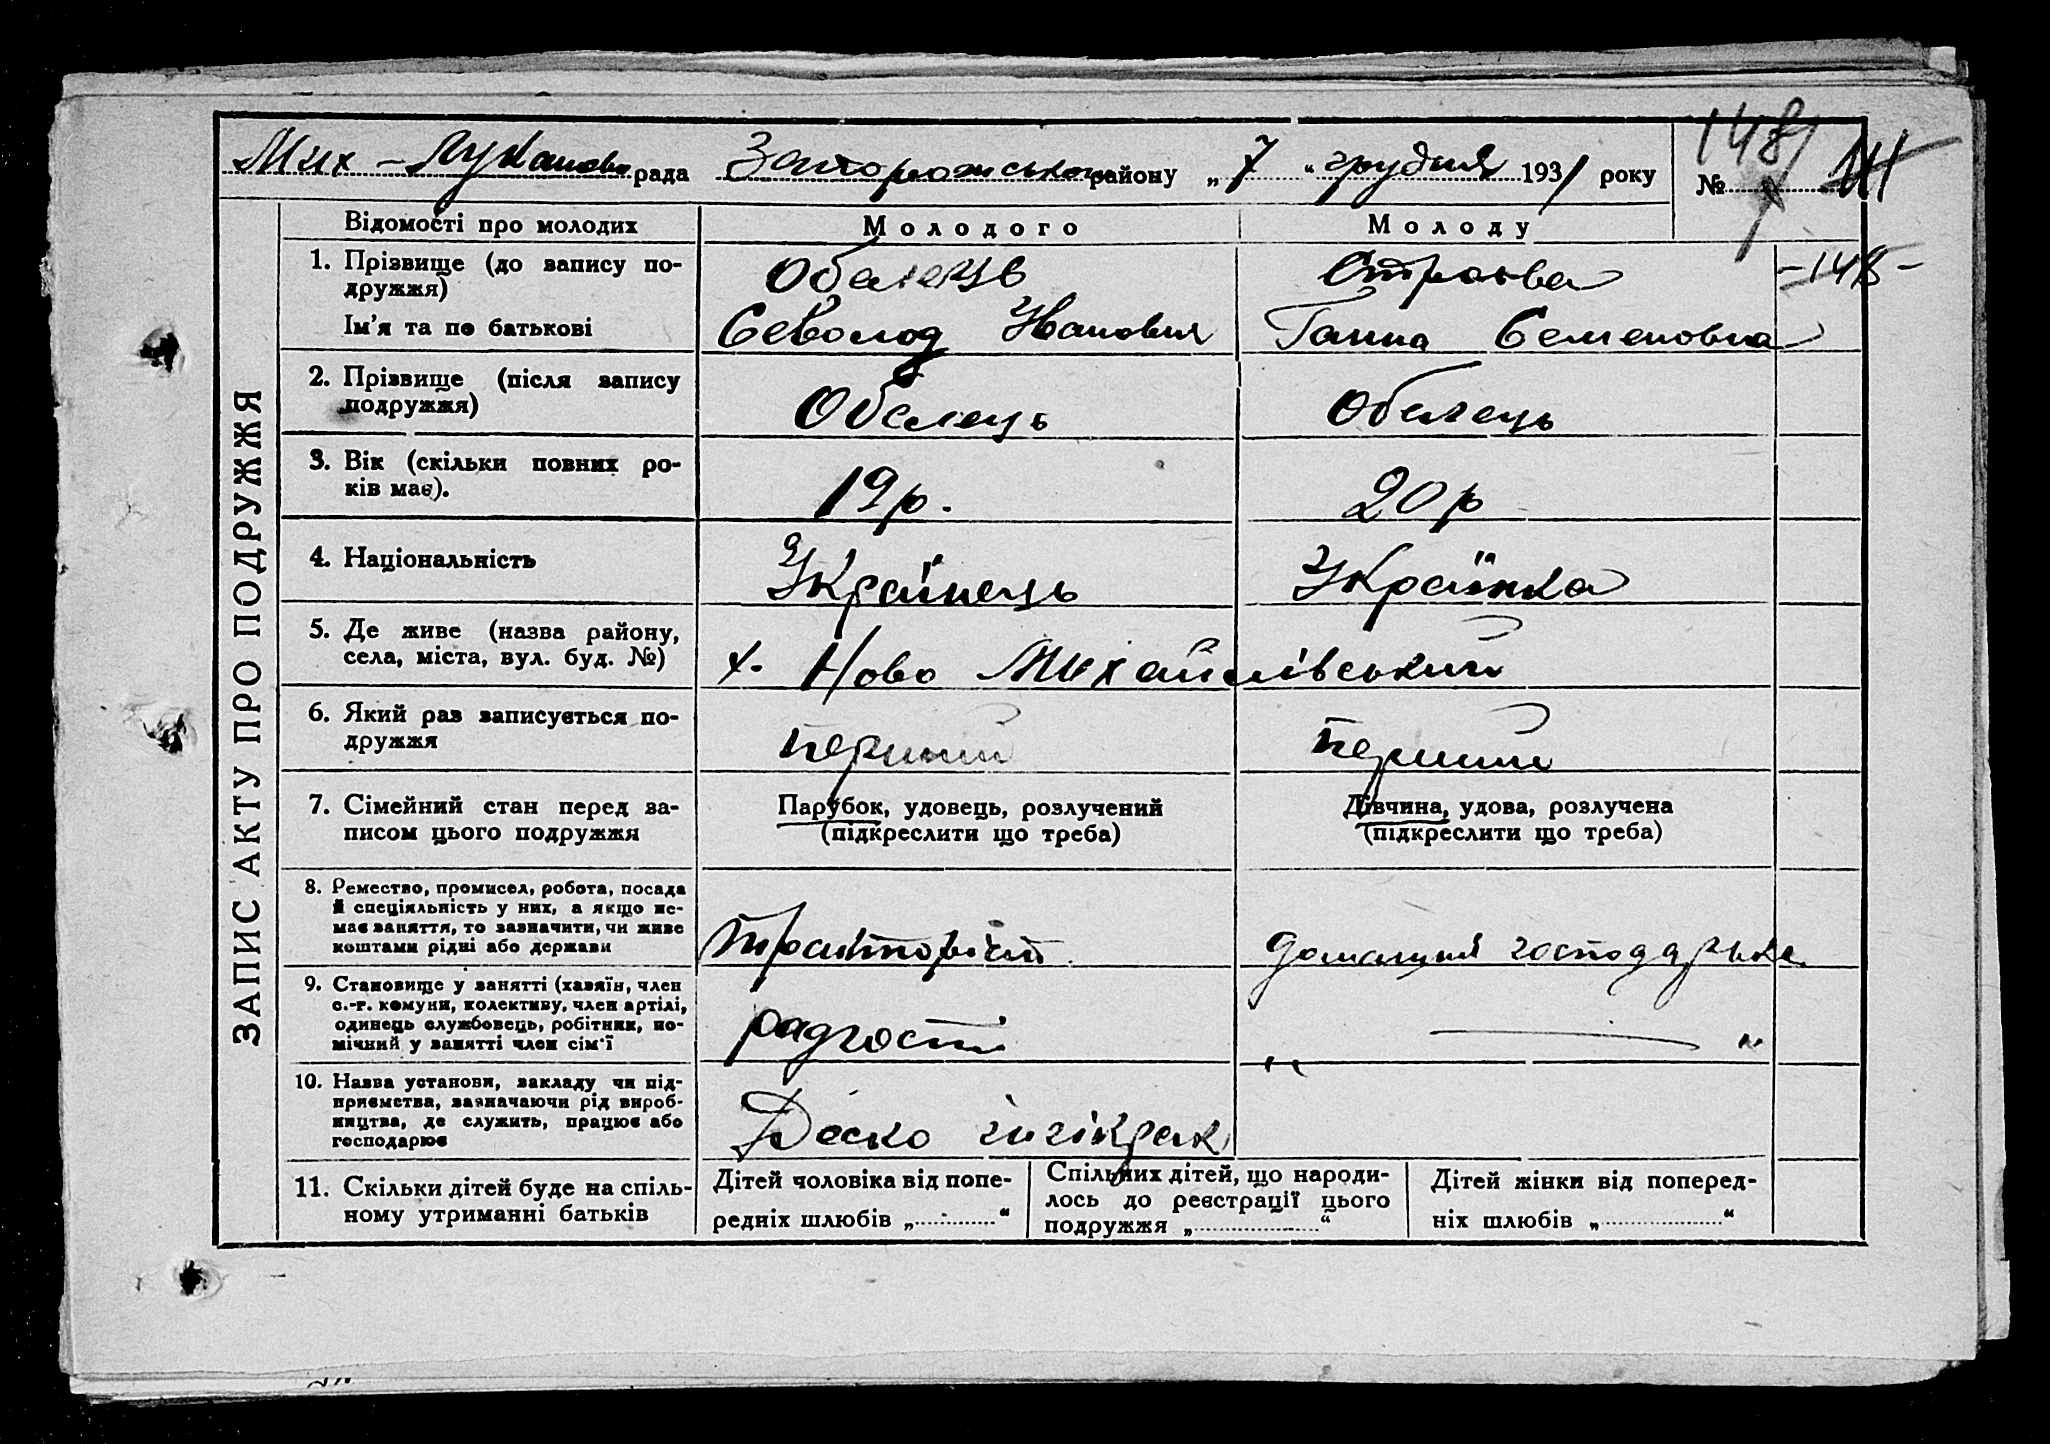 Мих - Лукашова рада Запорожського району „ 7 “ грудня 1931 року
№ 148
Відомості про молодих Молодого Молоду
- 148 -
1. Прізвище (до запису по-
дружжя)
Обалець Строєва
Ім'я та по батькові Севолод Иванович Ганна Семеновна
2. Прізвище (після запису
подружжя)
Обалець Обалець
3. Вік (скільки повних ро-
ків має).
19 р. 20 р
4. Національність Українець Українка
5. Де живе (назва району,
села, міста, вул. буд. №)
х. Ново Михайлівський
6. Який раз записується по-
дружжя
перший перший
7. Сімейний стан перед за-
писом цього подружжя
Парубок, удовець, розлучений
(підкреслити що треба)
Дівчина, удова, розлучена
(підкреслити що треба)
8. Ремество, промисел, робота, посада
й спеціяльність у них, а якщо не-
має заняття, то зазначити, чи живе
коштами рідні або держави
тракторіст
9. Становище у занятті (хазяїн, член
с.-г. комуни, колективу, член артілі,
одинець службовець, робітник, по-
мічний у занятті член сім'ї
радгоспі „ — “
10. Назва установи, закладу чи під-
приємства, зазначаючи рід вироб-
ництва, де служить, працює або
господарює
11. Скільки дітей буде на спіль-
ному утриманні батьків
Дітей чоловіка від попе-
редніх шлюбів „ “
Спільних дітей, що народи-
лось до реєстрації цього
подружжя „ “
Дітей жінки від поперед-
ніх шлюбів „ “
ЗАПИС АКТУ ПРО ПОДРУЖЖЯ